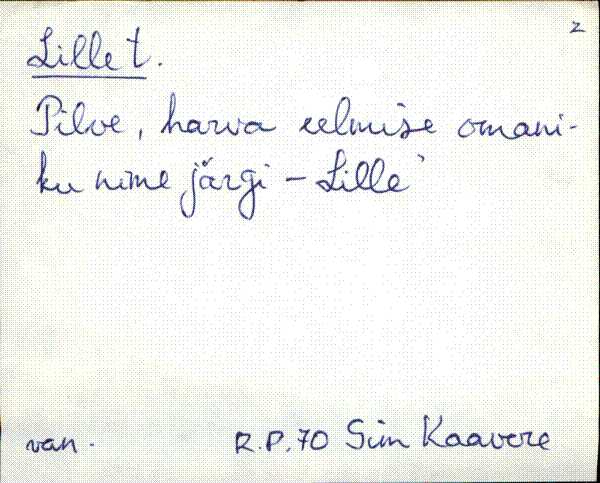 2
Lille t.
Pilve, harva eelmise omani-
ku nime järgi - Lille'
van. R.P.70 Siim Kaavere